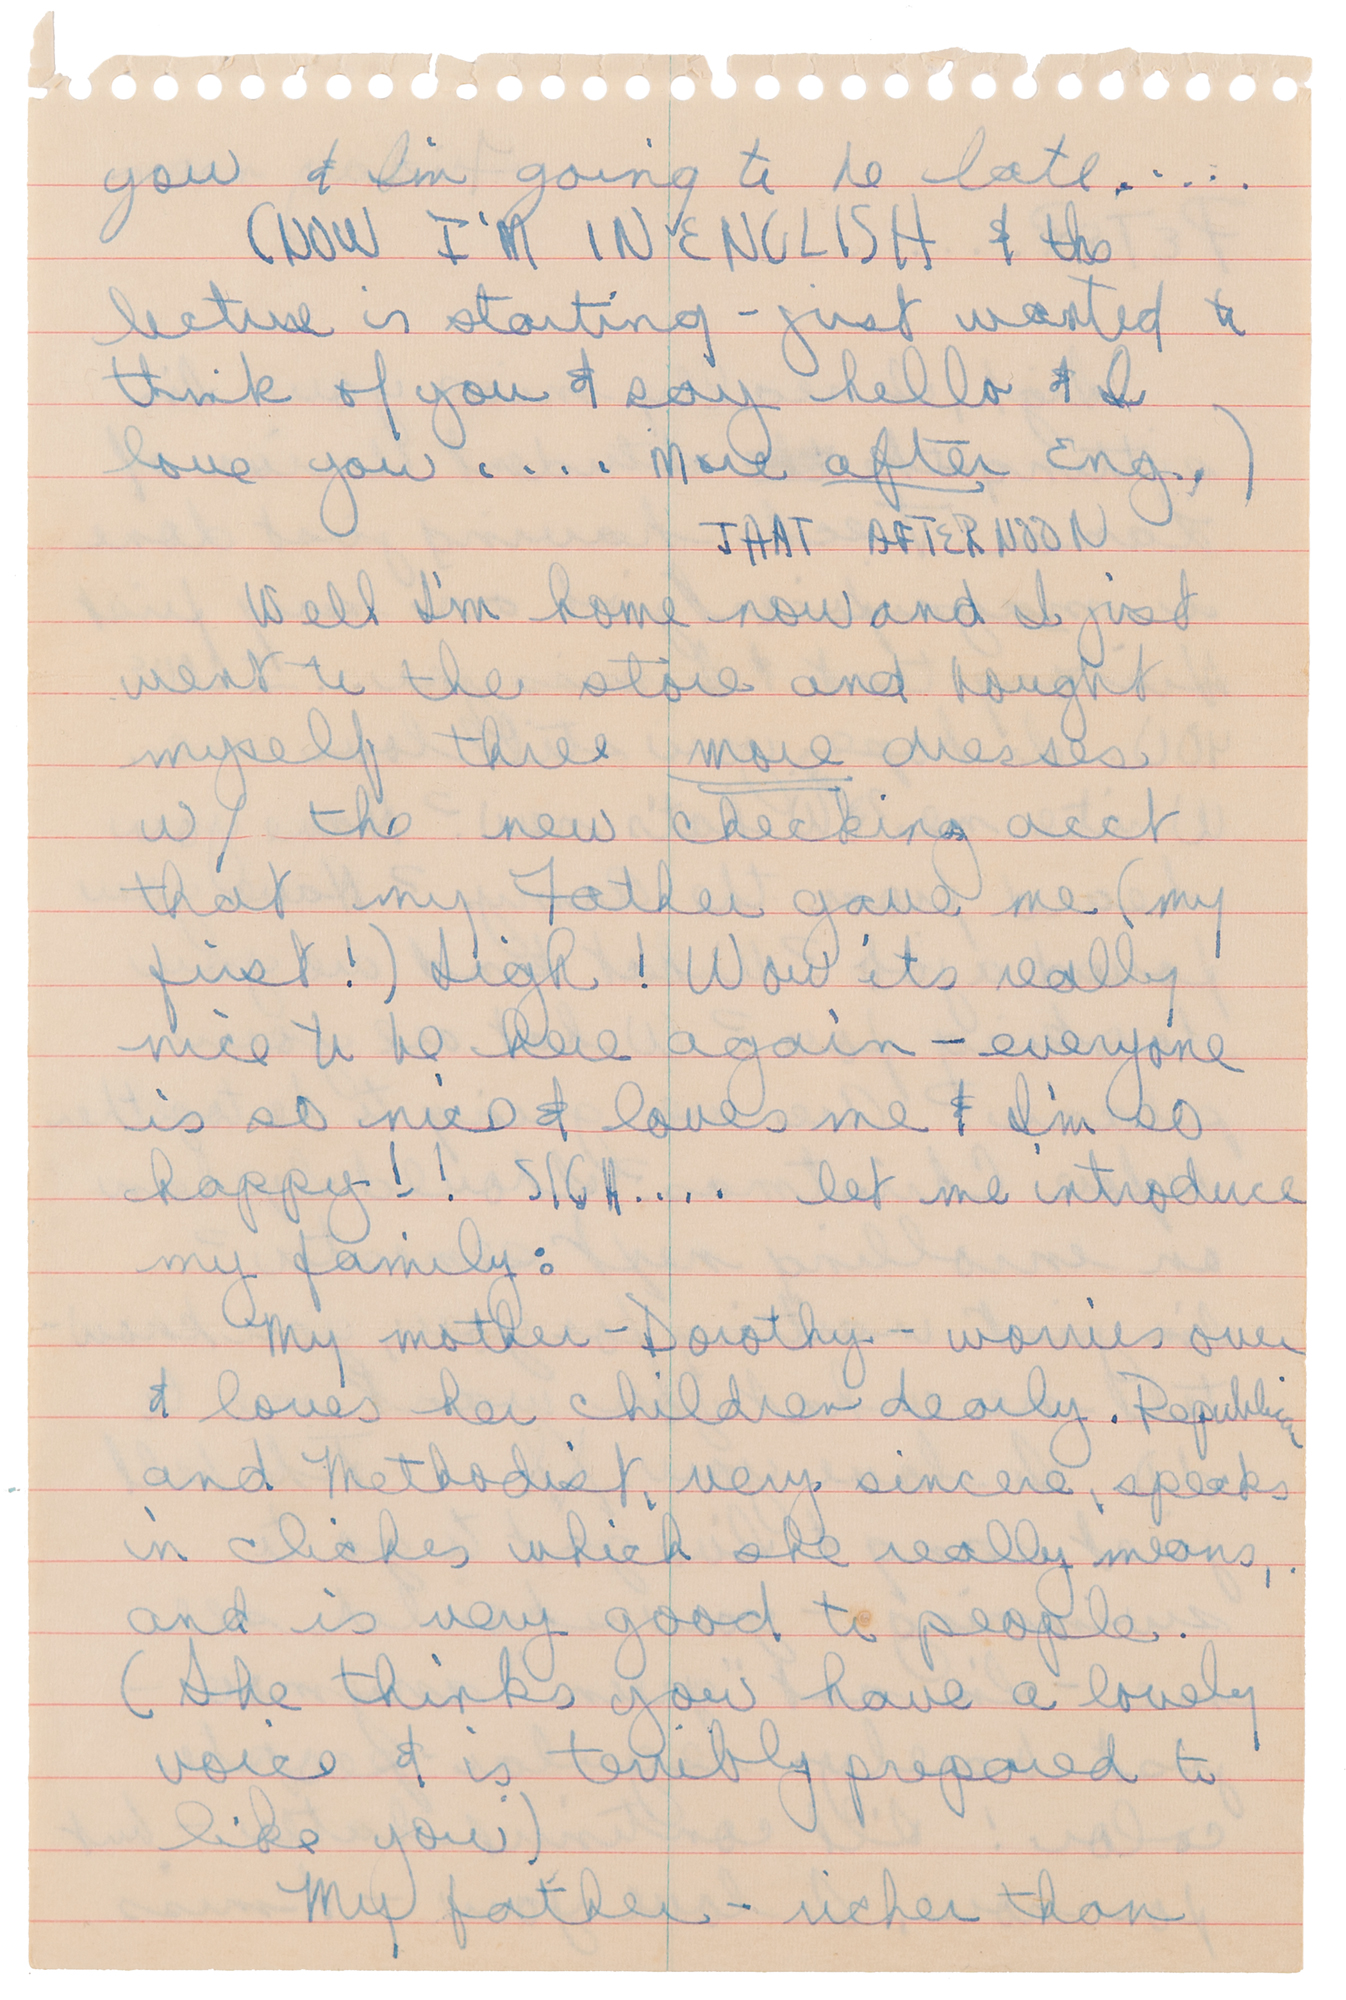 you & I'm going to be late.....
(NOW I'M IN ENGLISH & the
lecture is starting - just wanted to
think of you & say hello & I
love you .... More after Eng.,)
THAT AFTERNOON
Well I'm home now and I just
went to the store and bought
myself three more dresses
w/ the new checking acct
that my Father gave me (my
first!) Sigh! Wow its really
nice to be here again - everyone
is so nice & loves me & I'm so
happy!! SIGH.... let me introduce
my family:
My mother - Dorothy - worries over
& loves her children dearly. Republican
and Methodist, very sincere, speaks
in cliches which she really means,
and is very good to people.
(She thinks you have a lovely
voice & is terribly prepared to
like you)
My father - richer than